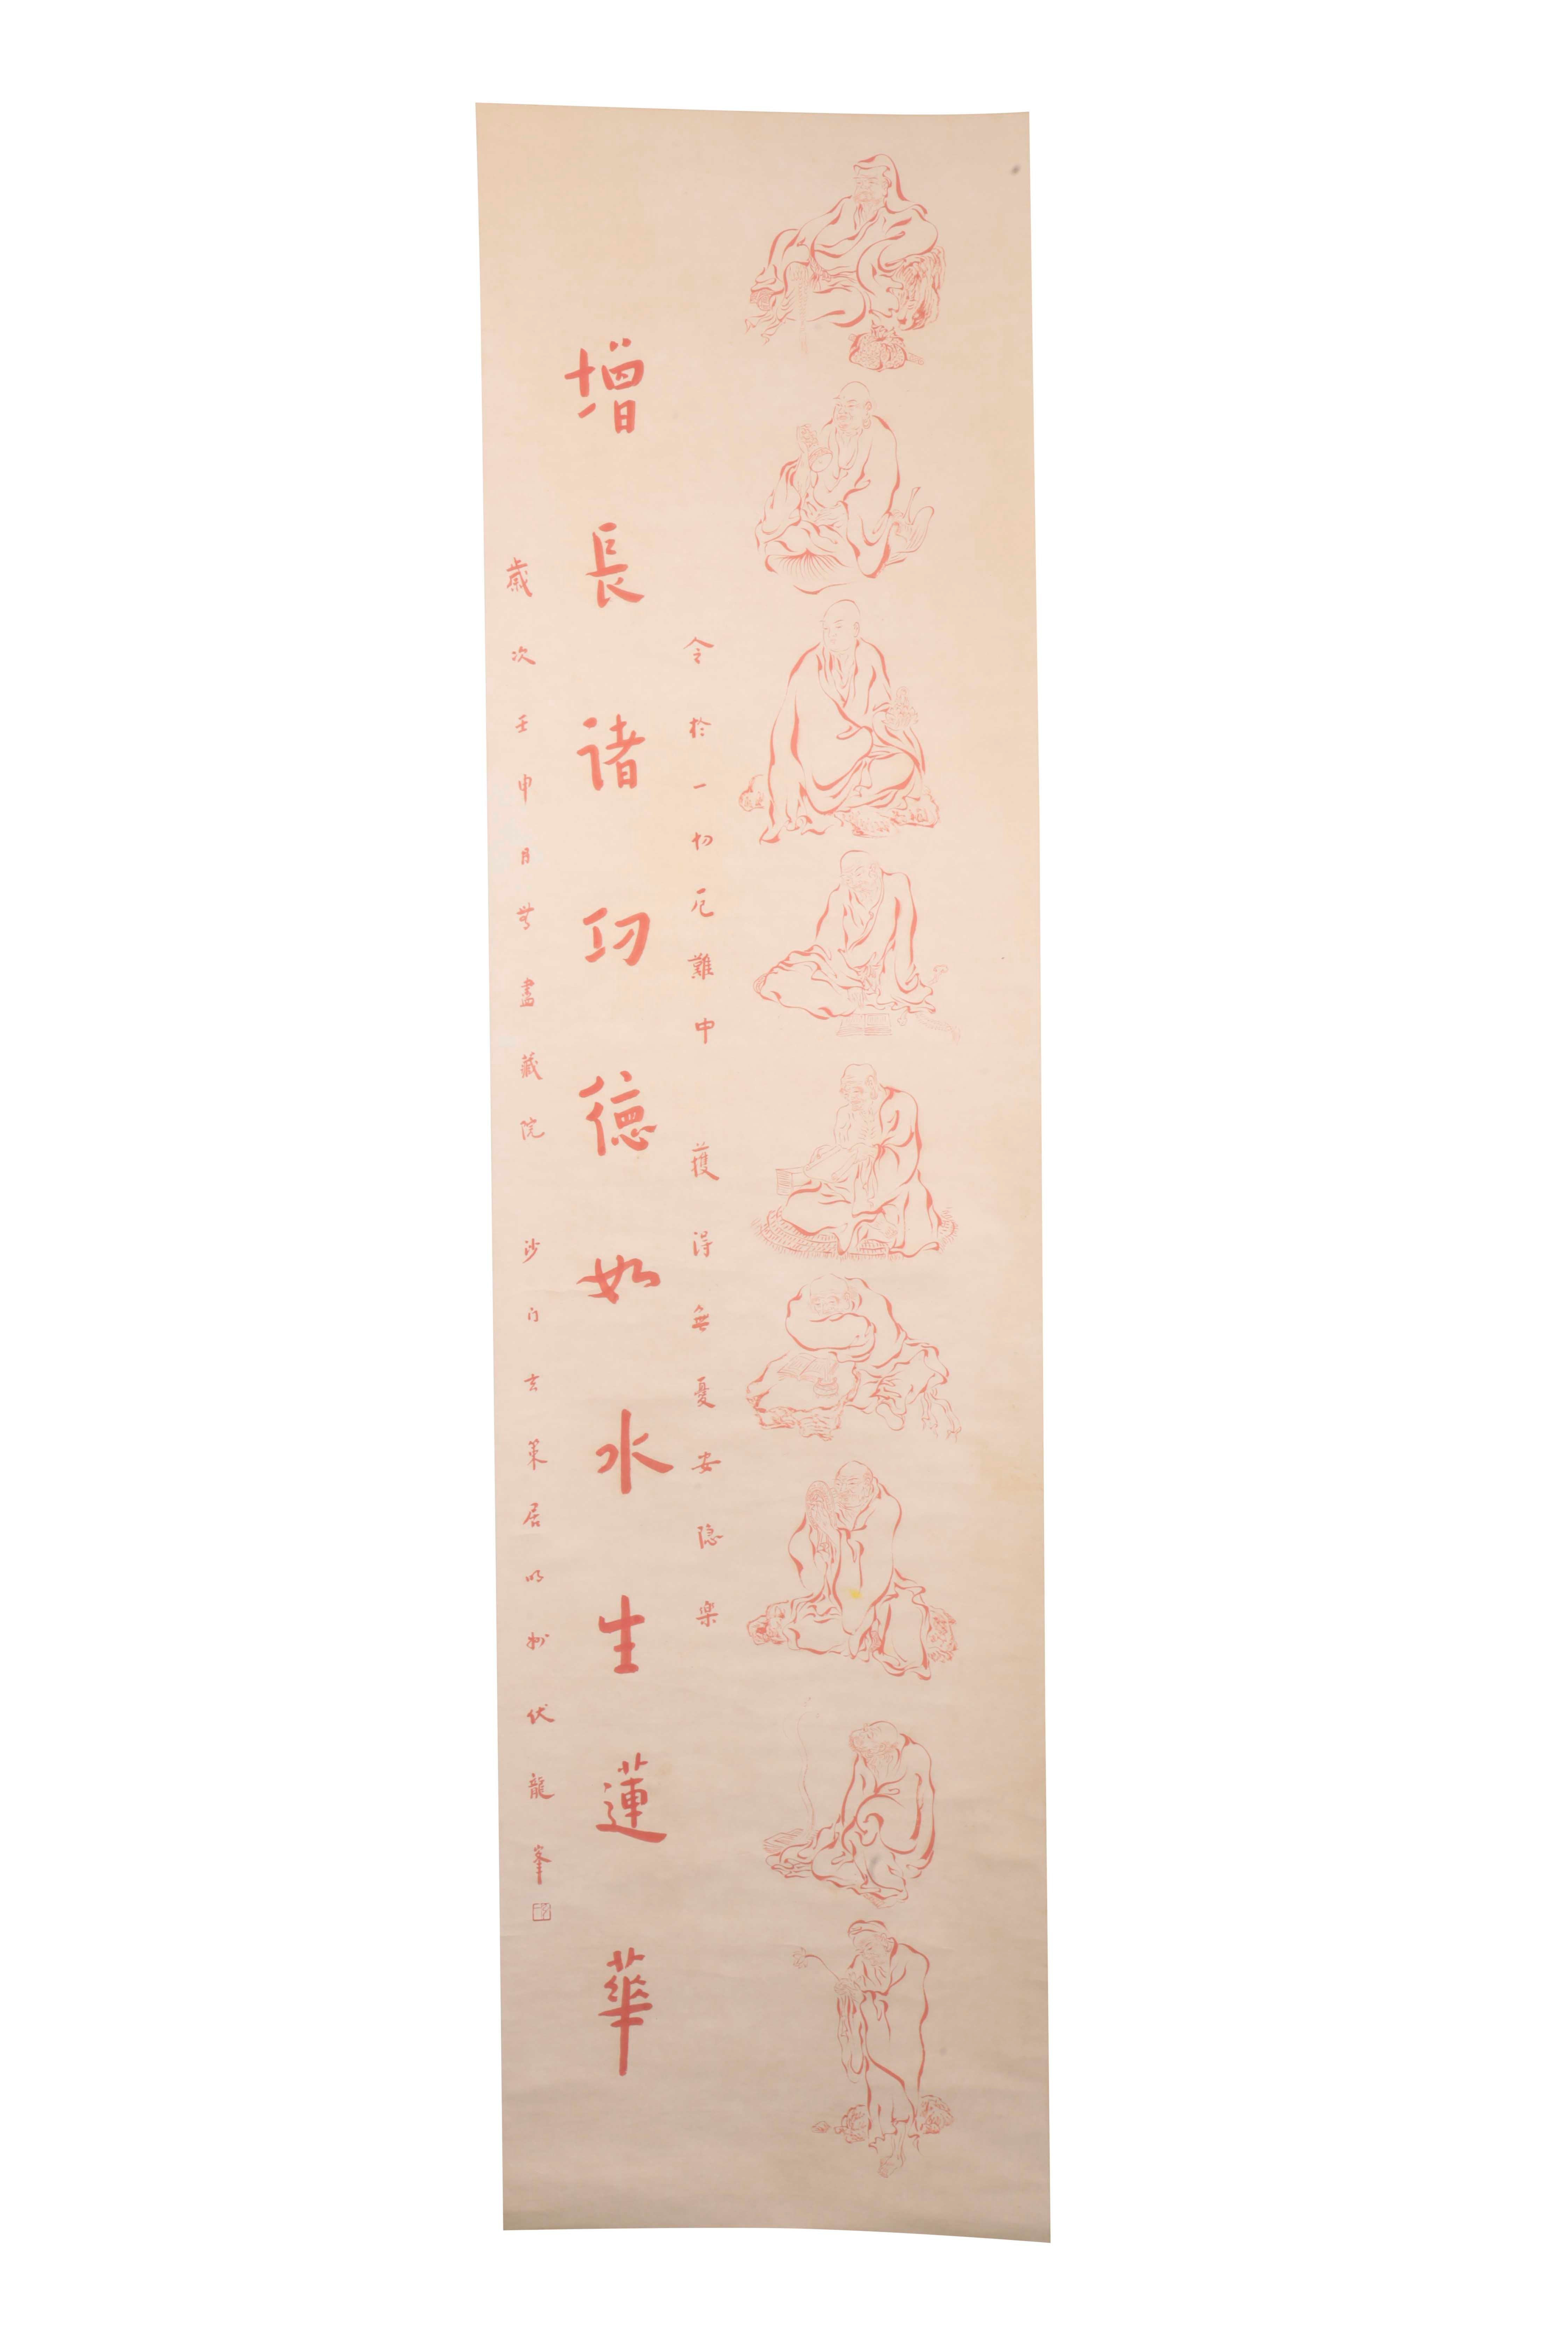 令於一切厄難中 獲得無憂安隱樂
增長諸功德如水生蓮華
歲次壬申月無盡藏院 沙门玄策居明州伏龍峯